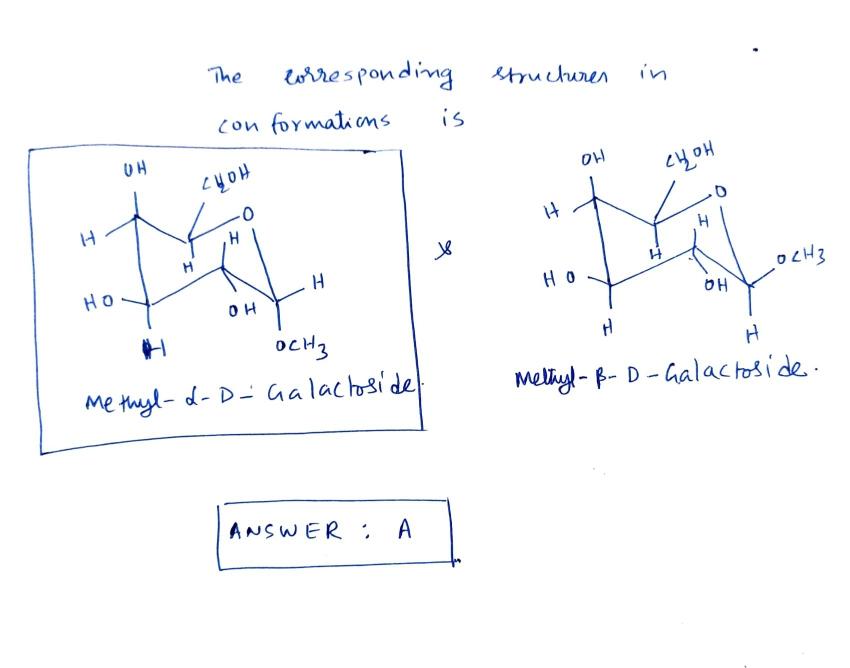 The corresponding structures in
conformations is
OH
CH2OH
O
H
H
H
H
HO
OH
H
OCH3
Methyl-α-D-Galactoside.
&
OH
CH2OH
O
H
H
H
OCH3
HO
OH
H
H
Methyl-β-D-Galactoside.
ANSWER : A